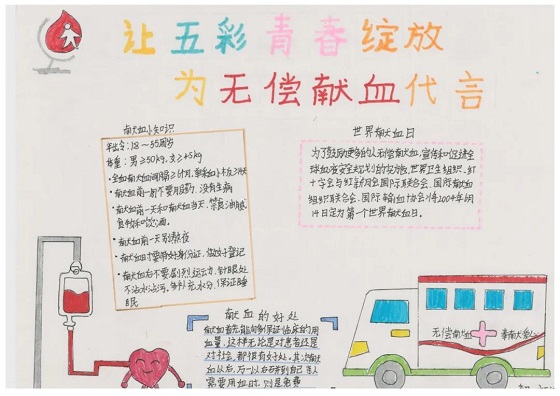 让五彩青春绽放
为无偿献血代言
献血小知识
年龄：18～55周岁
体重：男≥50kg，女≥45kg
献血前一周不要用药，没有生病
献血前一天和献血当天，禁食油腻
食物和饮酒。
献血前一天别熬夜
献血时要带好身份证，做好登记
献血后不要剧烈运动，针眼处
不沾水沾污，多补充水分，保证睡
眠
世界献血日
为了鼓励更多的人无偿献血，宣传和促进全
球血液安全规划的实施，世界卫生组织、红
十字会与红新月会国际联合会、国际献血
组织联合会、国际输血协会将2004年6月
14日定为第一个世界献血日。
献血的好处
献血首先能够保证临床的用
血量，这样无论是对患者还是
对社会，都很有好处。其次献
血以后，万一以后若来到自己
需要用血时，则是免费
无偿献血
奉献爱心